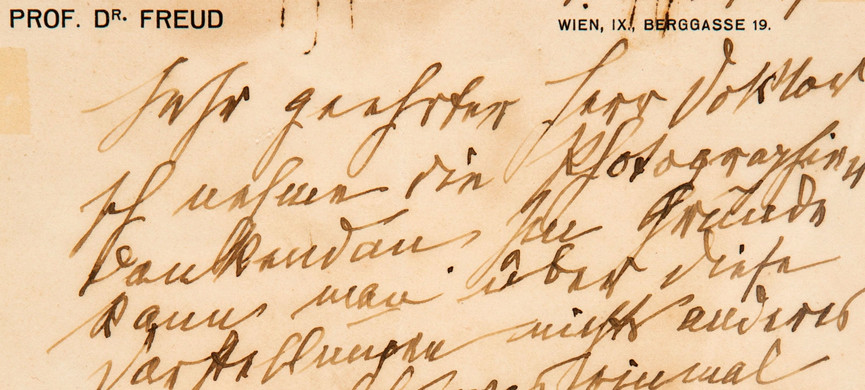 PROF. DR. FREUD
WIEN, IX., BERGGASSE 19.
Sehr geehrter Herr Doktor
Ich nehme die Photographien
dankend an. Im Grunde
kann man über diese
Darstellungen nichts anderes